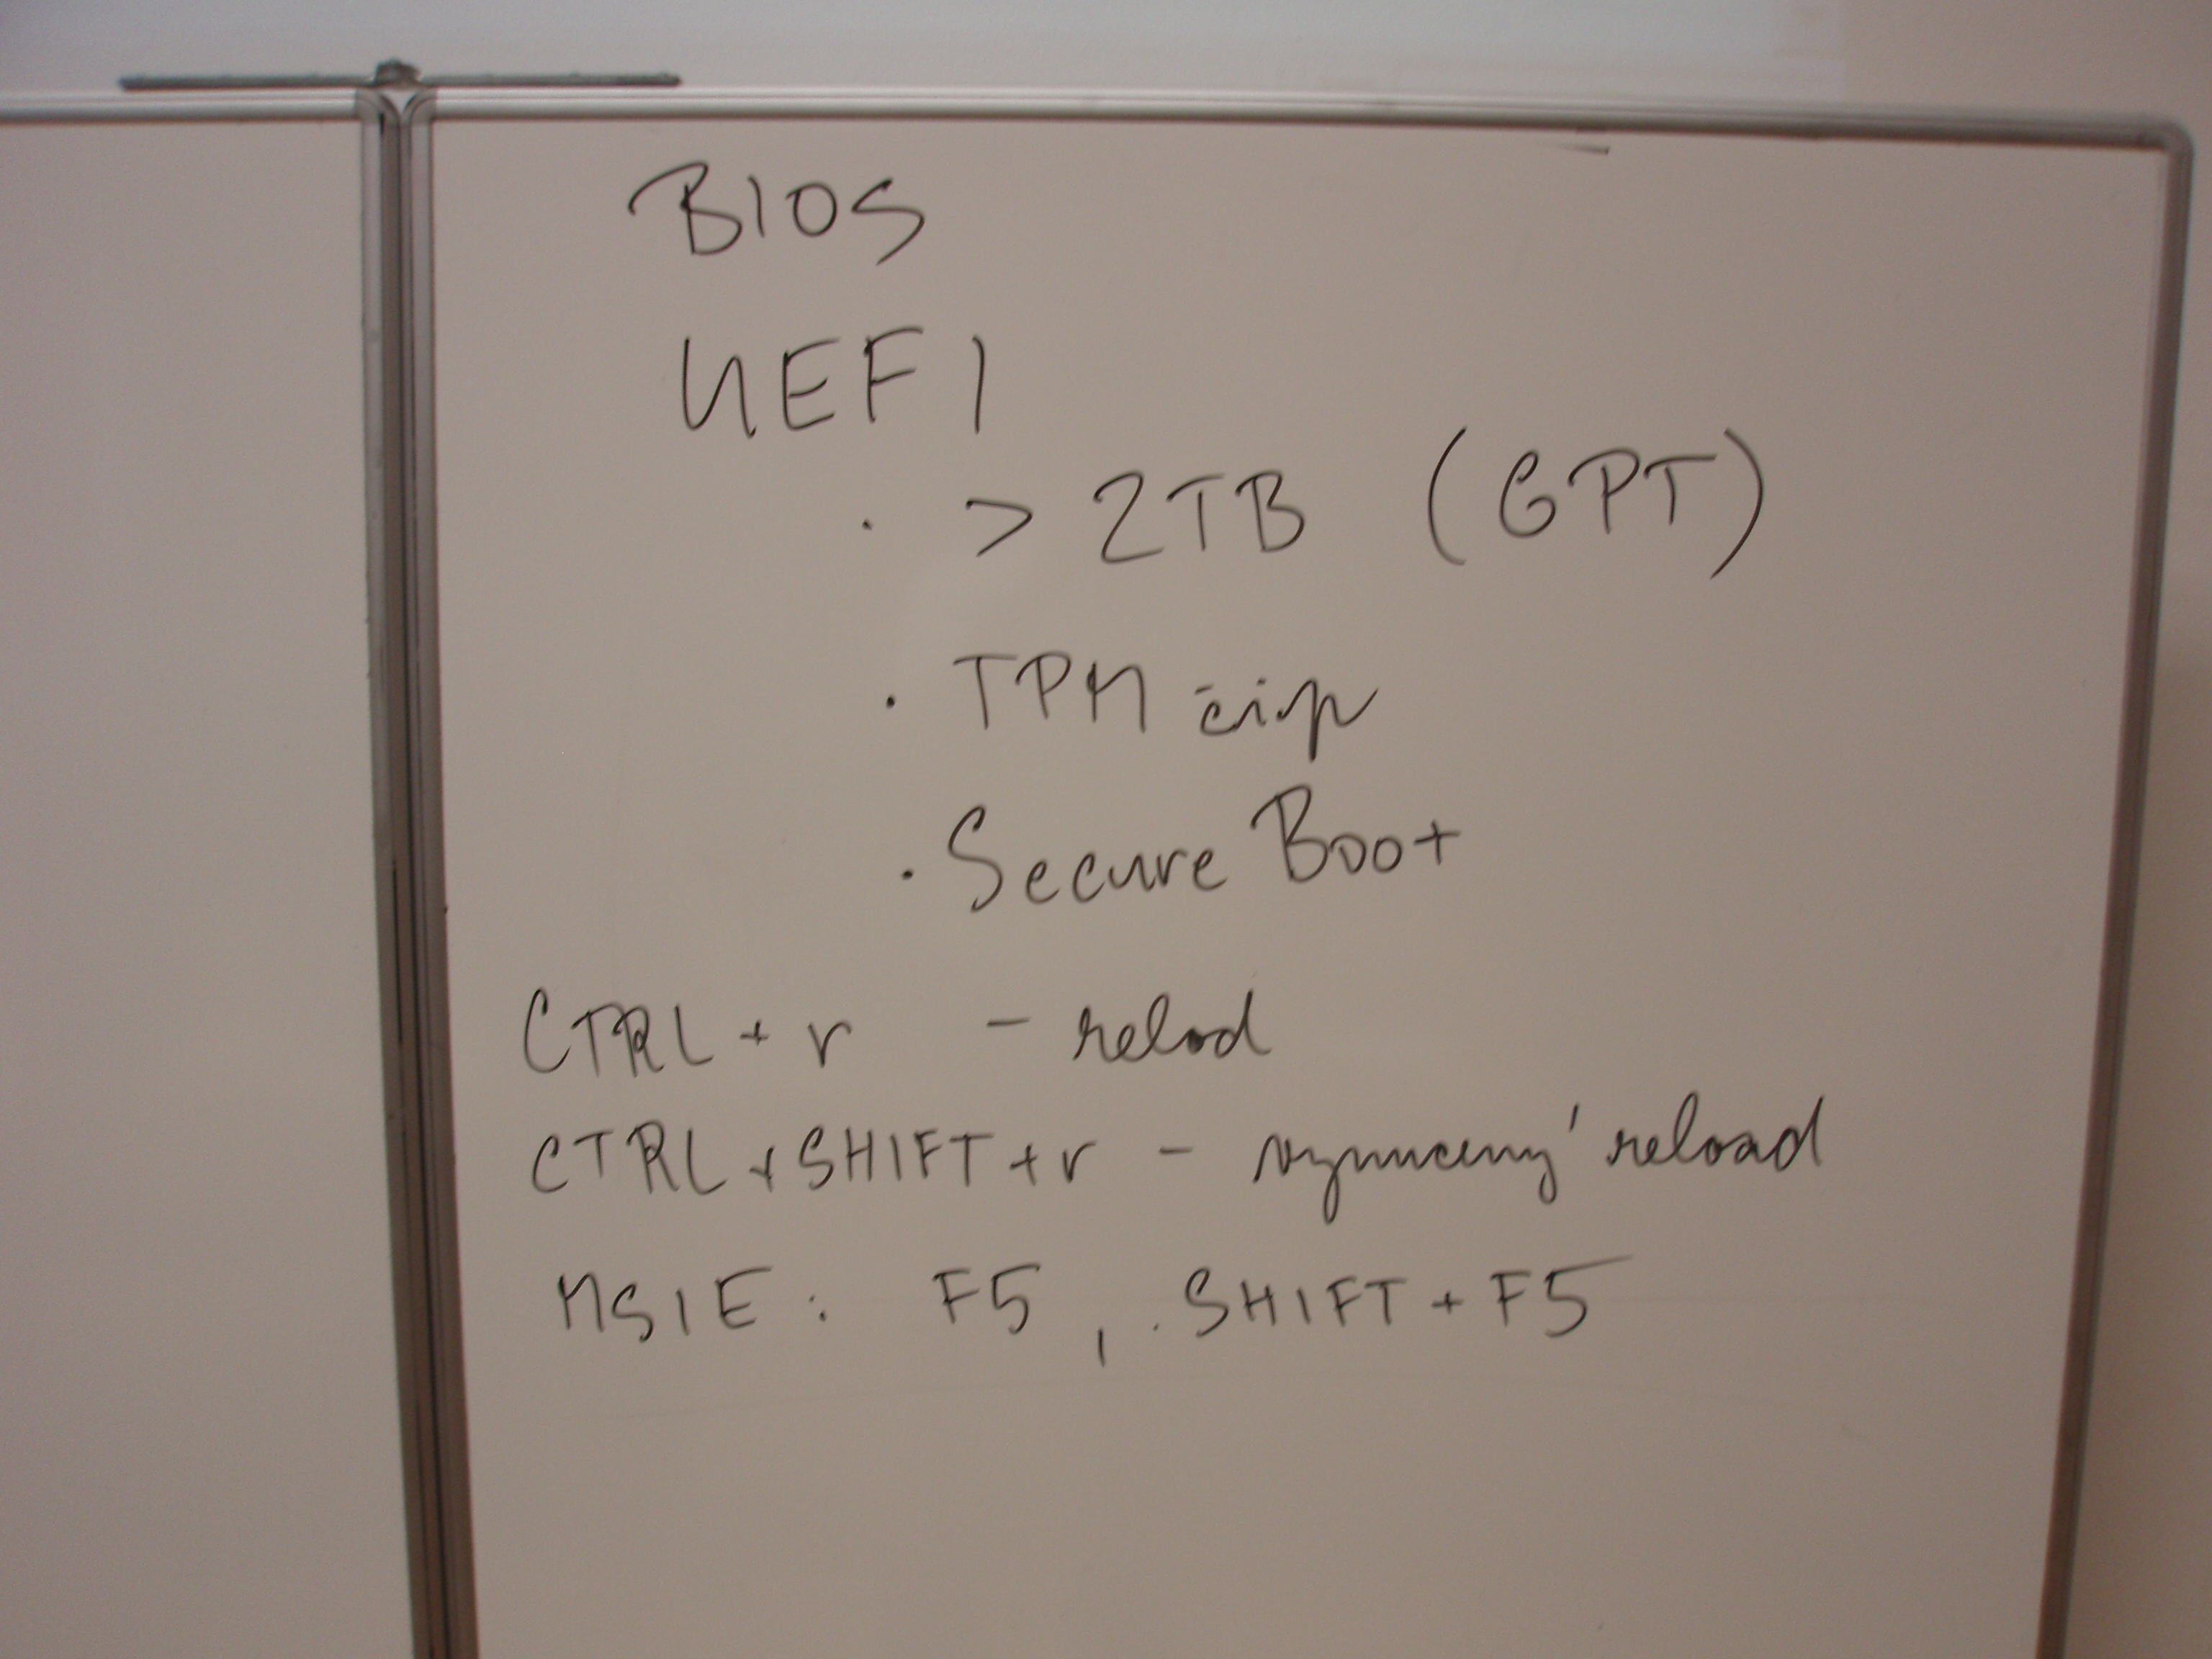 BIOS
UEFI
· > 2TB (GPT)
· TPM čip
· Secure Boot
CTRL + r - relod
CTRL + SHIFT + r - vynucený reload
MSIE : F5 , SHIFT + F5